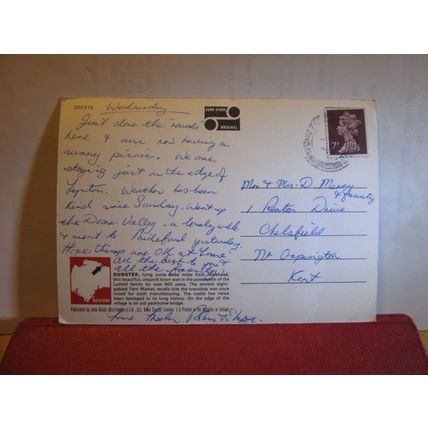 2DC418
Wednesday
JOHN HINDE
ORIGINAL
Just done the "rounds"
here & are now having a
sunny picnic. We are
staying just on the edge of
Lynton. Weather has been
kind since Sunday. Went up
the Doone Valley - a lovely walk
& went to Bideford yesterday.
Hope things are OK at home
All the best to you &
all the family
7P
Mr & Mrs D. Maxey
& family
1 Renton Drive
Chelsfield
Nr Orpington
Kent
DUNSTER, lying some three miles from Minehead,
this beautiful, unspoilt town was in the possession of the
Luttrell family for over 500 years. The ancient eight-
gabled Yarn Market, recalls that the township was once
noted for cloth manufacturing. The castle has twice
been besieged in its long history. On the edge of the
village is an old packhorse bridge.
DEVON
Published by John Hinde (Distributors) Ltd.,
Printed in the Republic of Ireland
love